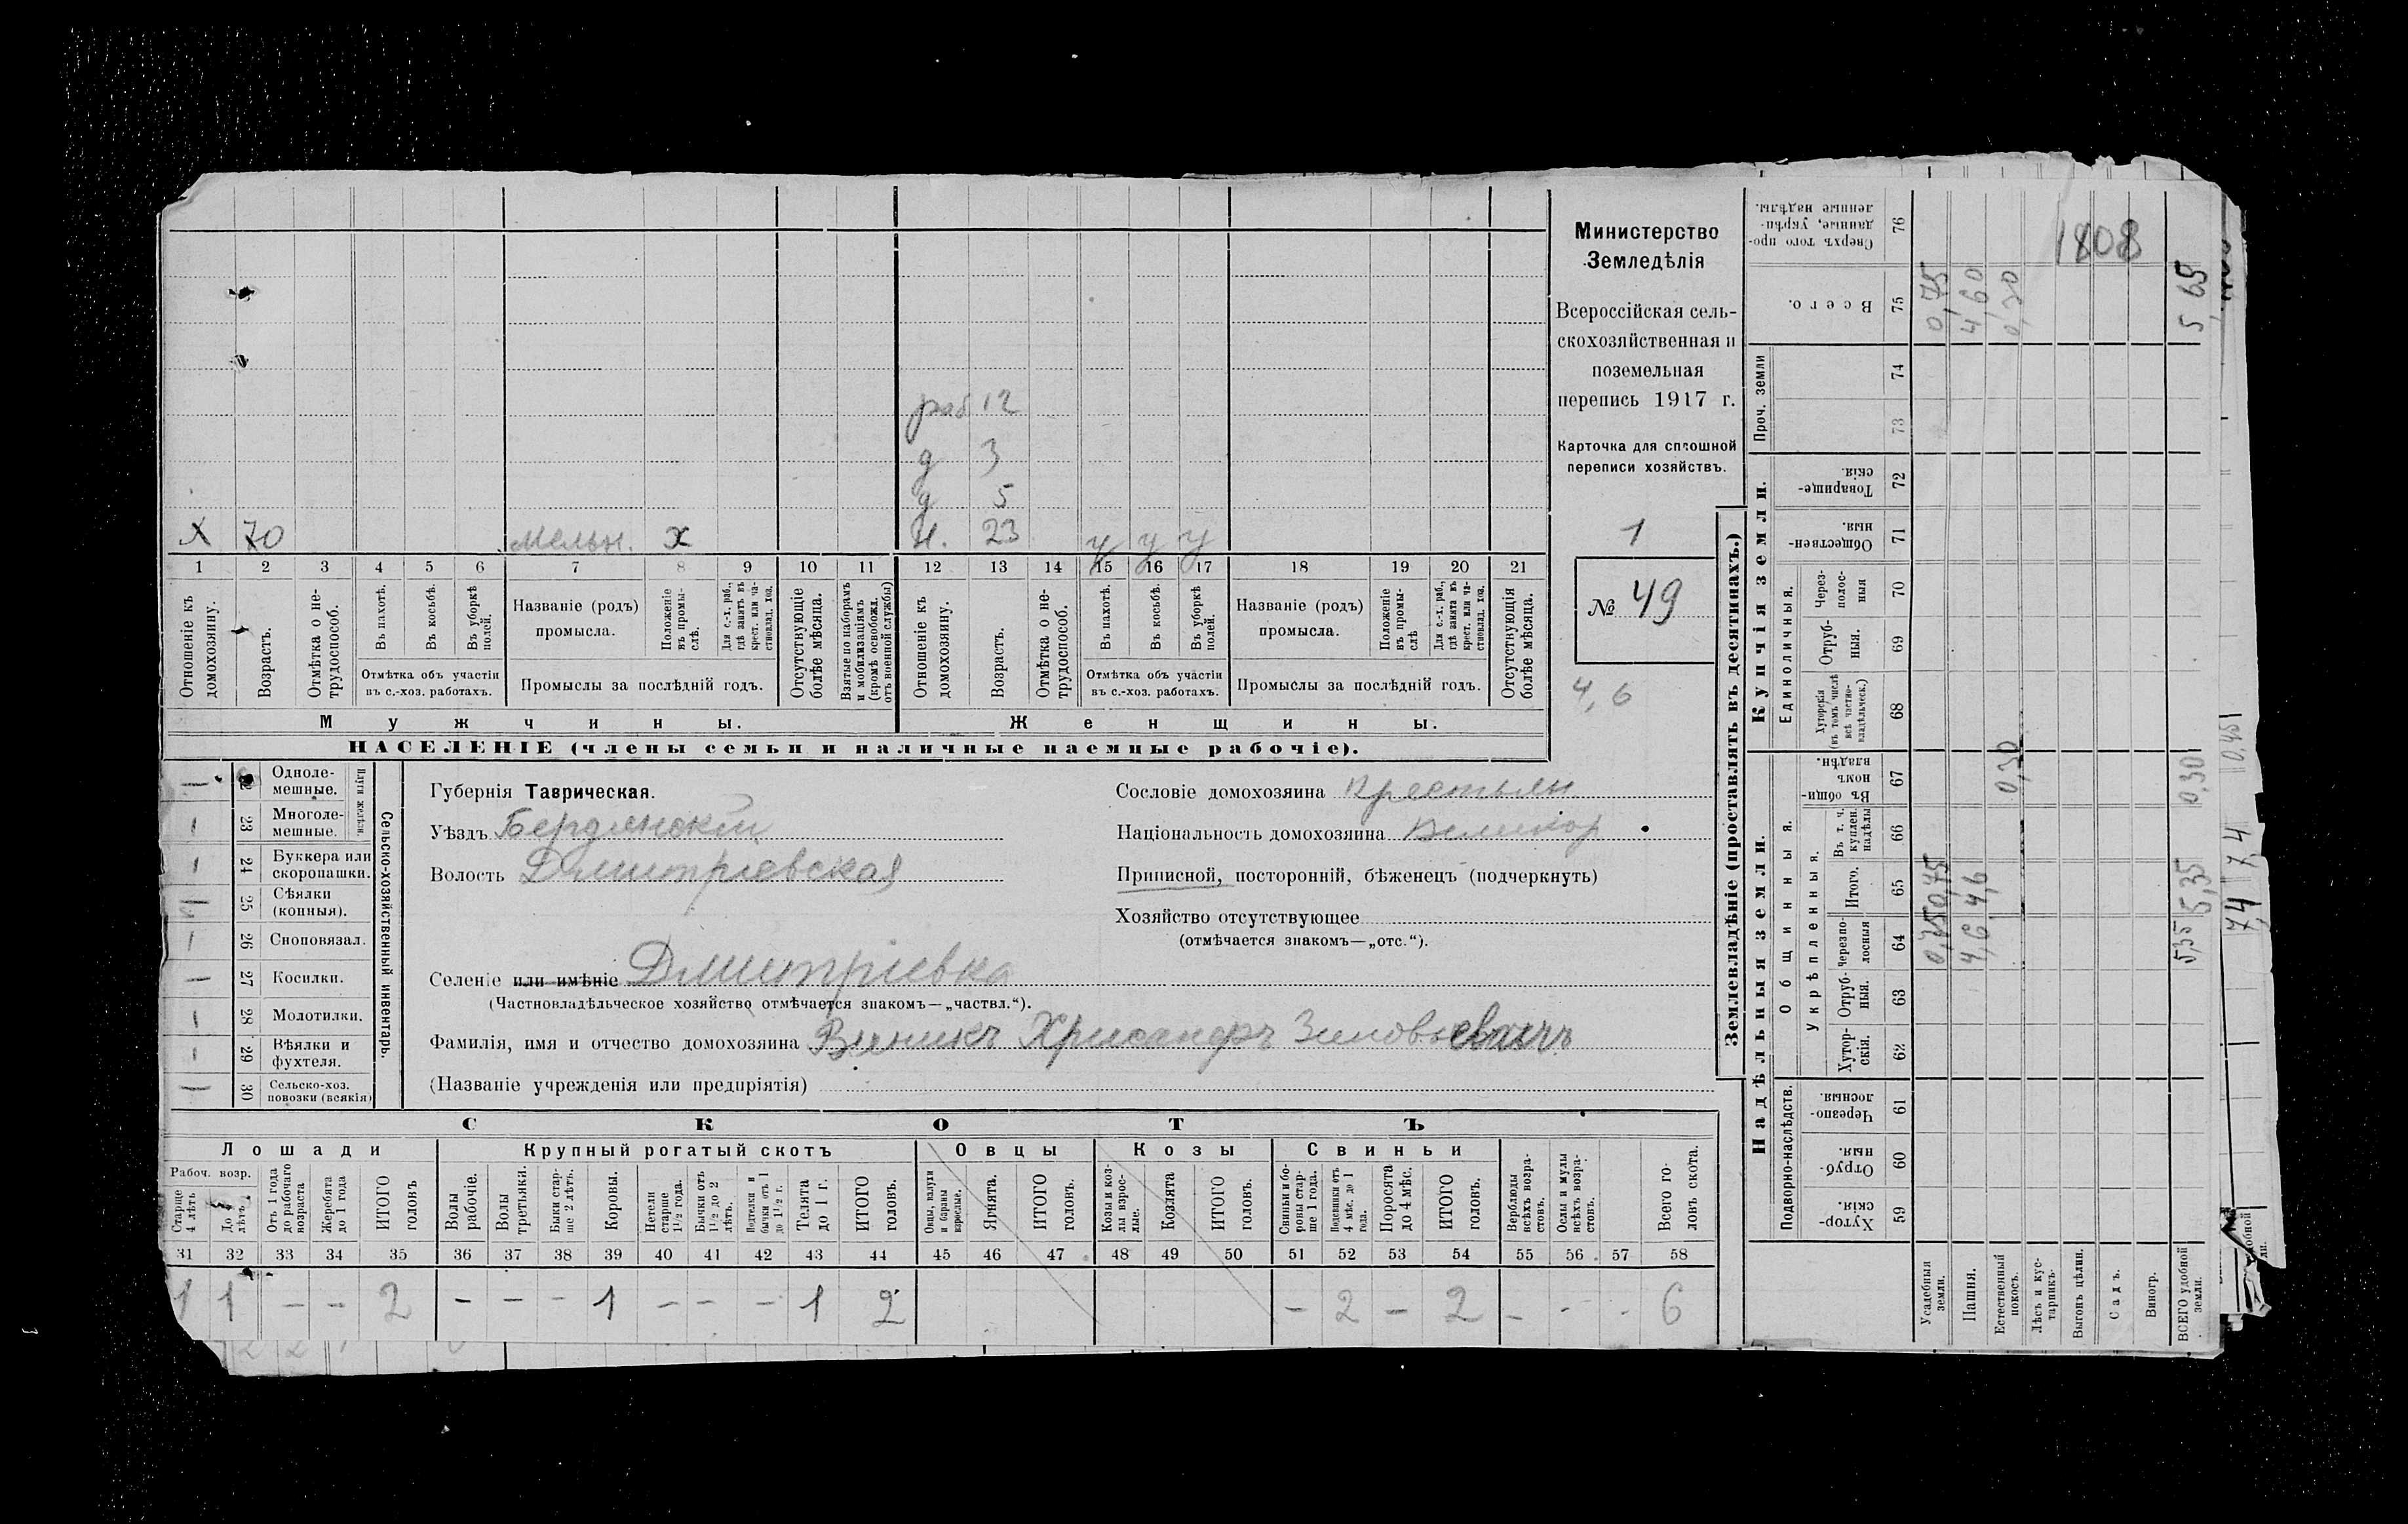 Министерство
Земледѣлія
Всероссійская сель-
скохозяйственная и
поземельная
перепись 1917 г.
Карточка для сплошной
переписи хозяйствъ.
1
№ 49
4,6
раб 12
д 3
д 5
х 70 мельн. х 23 у у у
1 2 3 4 5 6 7 8 9 10 11 12 13 14 15 16 17 18 19 20 21
Отношеніе къ домохозяину.
Возрастъ.
Отмѣтка о не-трудоспособ.
Въ пахотѣ.
Въ косьбѣ.
Въ уборкѣ полей.
Отмѣтка объ участіи въ с.-хоз. работахъ.
Названіе (родъ) промысла.
Положеніе въ промы-слѣ.
Для с.-х. раб., гдѣ занятъ въ крест. или ча-стновлад. хоз.
Промыслы за послѣдній годъ.
Отсутствующіе болѣе мѣсяца.
Взятые по наборамъ и мобилизаціямъ (кромѣ освобожд. отъ военной службы)
Отношеніе къ домохозяину.
Возрастъ.
Отмѣтка о не-трудоспособ.
Въ пахотѣ.
Въ косьбѣ.
Въ уборкѣ полей.
Отмѣтка объ участіи въ с.-хоз. работахъ.
Названіе (родъ) промысла.
Положеніе въ промы-слѣ
Для с.-х. раб., гдѣ занята въ крест. или ча-стновлад. хоз.
Промыслы за послѣдній годъ.
Отсутствующія болѣе мѣсяца.
Мужчины. Женщины.
НАСЕЛЕНІЕ (члены семьи и наличные наемные рабочіе).
Сельско-хозяйственный инвентарь.
Плуги желѣзн.
22 Одноле-мешные. —
23 Многоле-мешные. —
24 Буккера или скоропашки. —
25 Сѣялки (конныя).
26 Сноповязал. —
27 Косилки. —
28 Молотилки. —
29 Вѣялки и фухтеля. —
30 Сельско-хоз. повозки (всякія)
Губернія Таврическая.
Уѣздъ Бердянскій
Волость Дмитріевская
Сословіе домохозяина крестьян
Національность домохозяина Великор
Приписной, посторонній, бѣженецъ (подчеркнуть)
Хозяйство отсутствующее
(отмѣчается знакомъ—„отс.“).
Селеніе или имѣніе Дмитріевка
(Частновладѣльческое хозяйство отмѣчается знакомъ—„частвл.“).
Фамилія, имя и отчество домохозяина Виникъ Хрисанфъ Зиновьевичъ
(Названіе учрежденія или предпріятія)
СКОТЪ
Лошади Крупный рогатый скотъ Овцы Козы Свиньи
Рабоч. возр.
Старше 4 лѣтъ
До 4 лѣтъ
Отъ 1 года до рабочаго возраста
Жеребята до 1 года
ИТОГО головъ
Волы рабочіе.
Волы третьяки.
Быки стар-ше 2 лѣтъ.
Коровы.
Нетели старше 1½ года.
Бычки отъ 1½ до 2 лѣтъ.
Подтелки и бычки отъ 1 до 1½ г.
Телята до 1 г.
ИТОГО головъ.
Овцы, валухи и бараны взрослые.
Ягнята.
ИТОГО головъ.
Козы и коз-лы взрос-лые.
Козлята
ИТОГО головъ.
Свиньи и бо-ровы стар-ше 1 года.
Подсвинки отъ 4 мѣс. до 1 года.
Поросята до 4 мѣс.
ИТОГО головъ.
Верблюды всѣхъ возра-стовъ.
Ослы и мулы всѣхъ возра-стовъ.
Всего го-ловъ скота.
31 32 33 34 35 36 37 38 39 40 41 42 43 44 45 46 47 48 49 50 51 52 53 54 55 56 57 58
1 1 — — 2 — — — 1 — — — 1 2 — 2 — 2 — - - 6
Землевладѣніе (проставлять въ десятинахъ.)
Надѣльныя земли. Купчія земли. Проч. земли
Подворно-наслѣдств. Общинныя. Укрѣпленныя. Единоличныя.
Хутор-скія. 59
Отруб-ныя. 60
Черезпо-лосныя 61
Хутор-скія. 62
Отруб-ныя. 63
Черезпо-лосныя 64
Итого. 65
Въ т. ч. куплен. надѣлы 66
Въ общин-номъ владѣн. 67
Хуторскія (въ томъ числѣ всѣ частно-владѣльческ.) 68
Отруб-ныя. 69
Через-полос-ныя 70
Обществен-ныя. 71
Товарище-скія. 72
73 74
Всего. 75
Сверхъ того про-данные, укрѣп-ленные надѣлы. 76
Усадебныя земли. 0,75 0,75 0,75
Пашня. 4,6 4,6 4,60
Естественный покосъ. 0,30 0,30
Лѣсъ и кус-тарникъ.
Выгонъ цѣлин. 1808
Садъ.
Виногр.
ВСЕГО удобной земли. 5,35 5,35 0,30 5 65
7,4 7,4 0,45